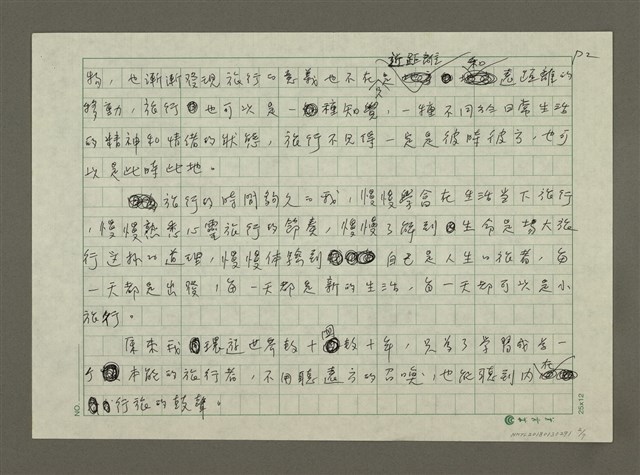 P2
近距離 和
物，也漸漸發現旅行的意義也不在是 遠距離的
移動，旅行也可以是一種知覺，一種不同於日常生活
的精神和情緒的狀態，旅行不見得一定是彼時彼方，也可
以是此時此地。
旅行的時間夠久的我，慢慢學會在生活當下旅行
，慢慢熟悉心靈旅行的節奏，慢慢了解到生命是場大旅
行這椿的道理，慢慢体驗到自己是人生的旅者，每
一天都是出發，每一天都是新的生活，每一天都可以是小
旅行。
原來我環遊世界數十回數十年，只為了學習成為一
个本能的旅行者，不用聽遠方的召喚，也能聽到內在
行旅的鼓聲。
NO.
25x12
2/7